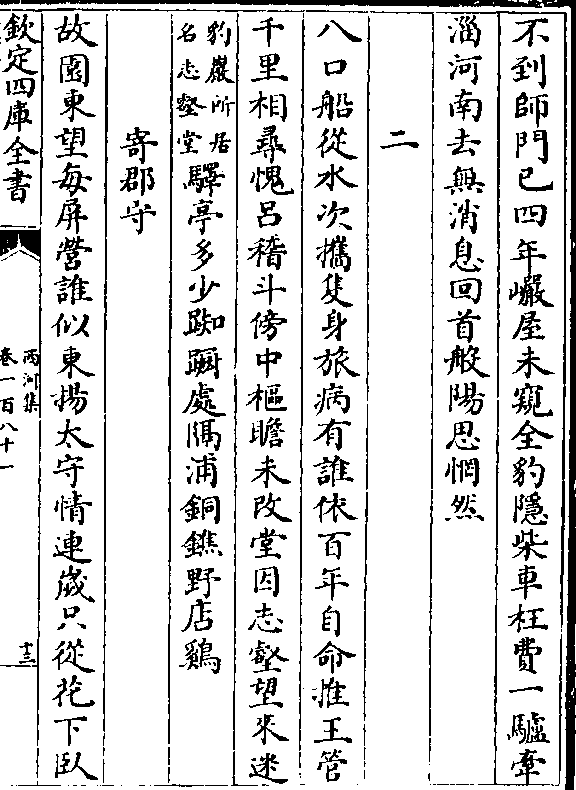 不到師門已四年巖屋未窺全豹隱柴車枉費一驢牽
淄河南去無消息回首般陽思惘然
二
八口船從水次攜隻身旅病有誰依百年自命推王管
千里相尋愧呂稽斗傍中樞瞻未改堂因志壑望來迷
豹巖所居
名志壑堂
驛亭多少踟躕處隔浦銅鐎野店鷄
寄郡守
故園東望每屏營誰似東揚太守情連歲只從花下臥
欽定四庫全書
西河集
卷一百八十一
十三